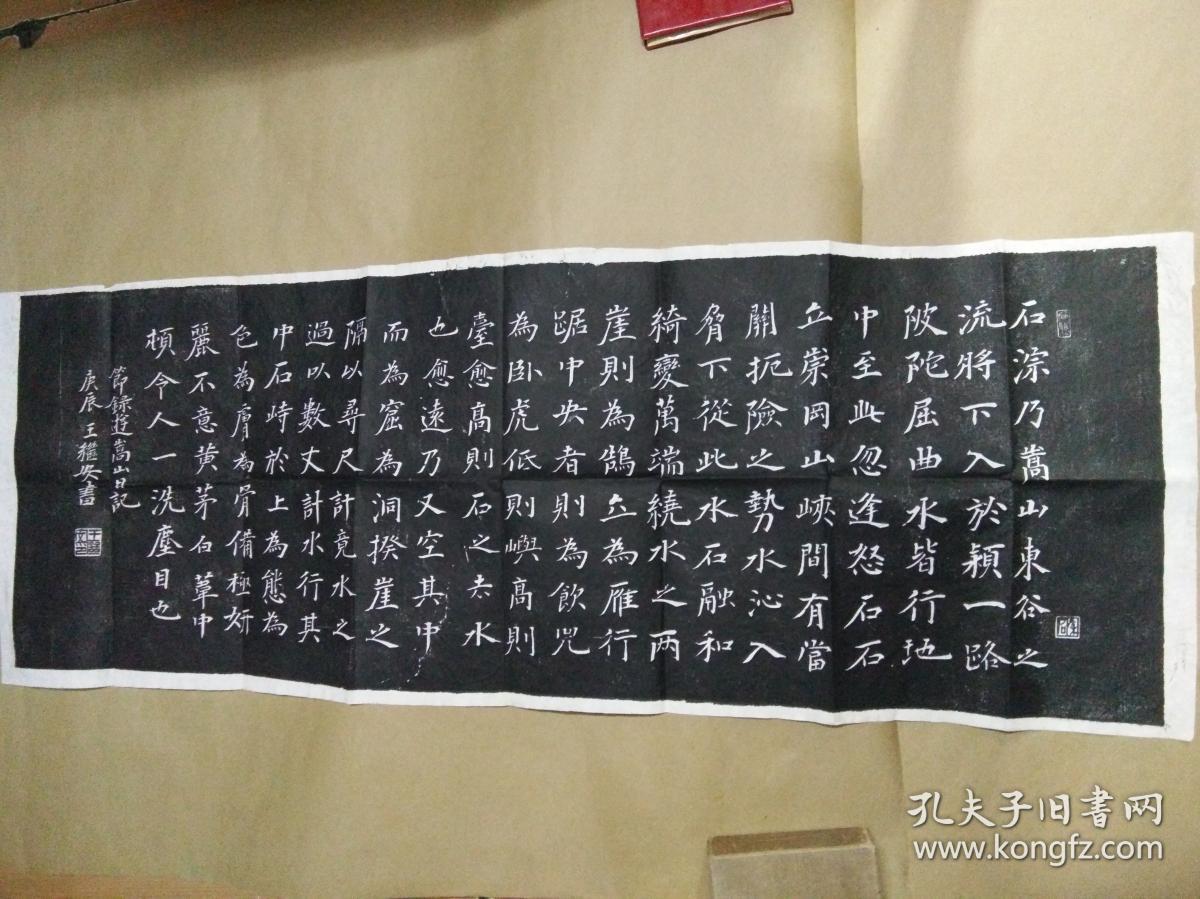 石淙乃嵩山東谷之
流將下入於潁一路
陂陀屈曲水皆行地
中至此忽逢怒石石
立崇岡山峽間有當
關扼險之勢水沁入
脅下從此水石融和
綺變萬端繞水之兩
崖則為鵠立為雁行
踞中央者則為飲兕
為臥虎低則嶼高則
臺愈高則石之去水
也愈遠乃又空其中
而為窟為洞揆崖之
隔以尋尺計竟水之
過以數丈計水行其
中石峙於上為態為
色為膚為骨備極妍
麗不意黃茅白葦中
頓令人一洗塵目也
節錄遊嵩山日記
庚辰 王繼安書
孔夫子旧書网
www.kongfz.com